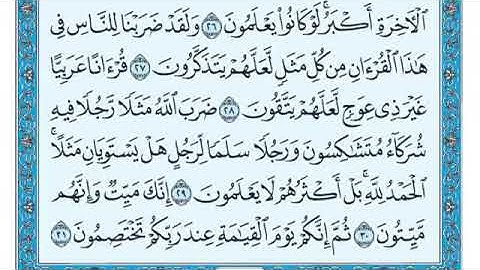 ٱلْأَخِرَةِ أَكْبَرُ لَوْ كَانُوا۟ يَعْلَمُونَ ٢٦ وَلَقَدْ ضَرَبْنَا لِلنَّاسِ فِى
هَٰذَا ٱلْقُرْءَانِ مِن كُلِّ مَثَلٍ لَّعَلَّهُمْ يَتَذَكَّرُونَ ٢٧ قُرْءَانًا عَرَبِيًّا
غَيْرَ ذِى عِوَجٍ لَّعَلَّهُمْ يَتَّقُونَ ٢٨ ضَرَبَ ٱللَّهُ مَثَلًا رَّجُلًا فِيهِ
شُرَكَآءُ مُتَشَٰكِسُونَ وَرَجُلًا سَلَمًا لِّرَجُلٍ هَلْ يَسْتَوِيَانِ مَثَلًا ۚ
ٱلْحَمْدُ لِلَّهِ ۚ بَلْ أَكْثَرُهُمْ لَا يَعْلَمُونَ ٢٩ إِنَّكَ مَيِّتٌ وَإِنَّهُم
مَّيِّتُونَ ٣٠ ثُمَّ إِنَّكُمْ يَوْمَ ٱلْقِيَٰمَةِ عِندَ رَبِّكُمْ تَخْتَصِمُونَ ٣١